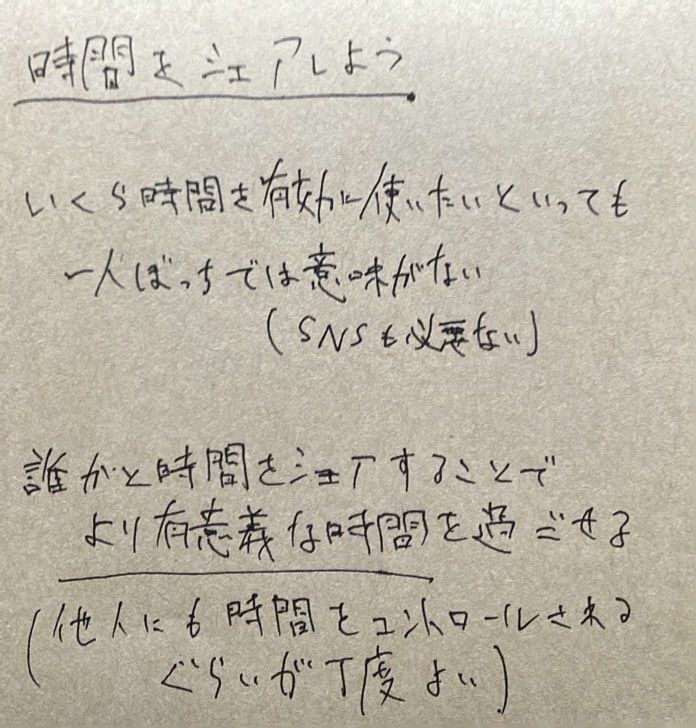 時間をシェアしよう
いくら時間を有効に使いたいといっても
一人ぼっちでは意味がない
(SNSも必要ない)
誰かと時間をシェアすることで
より有意義な時間を過ごせる
(他人にも時間をコントロールされる
ぐらいが丁度よい)